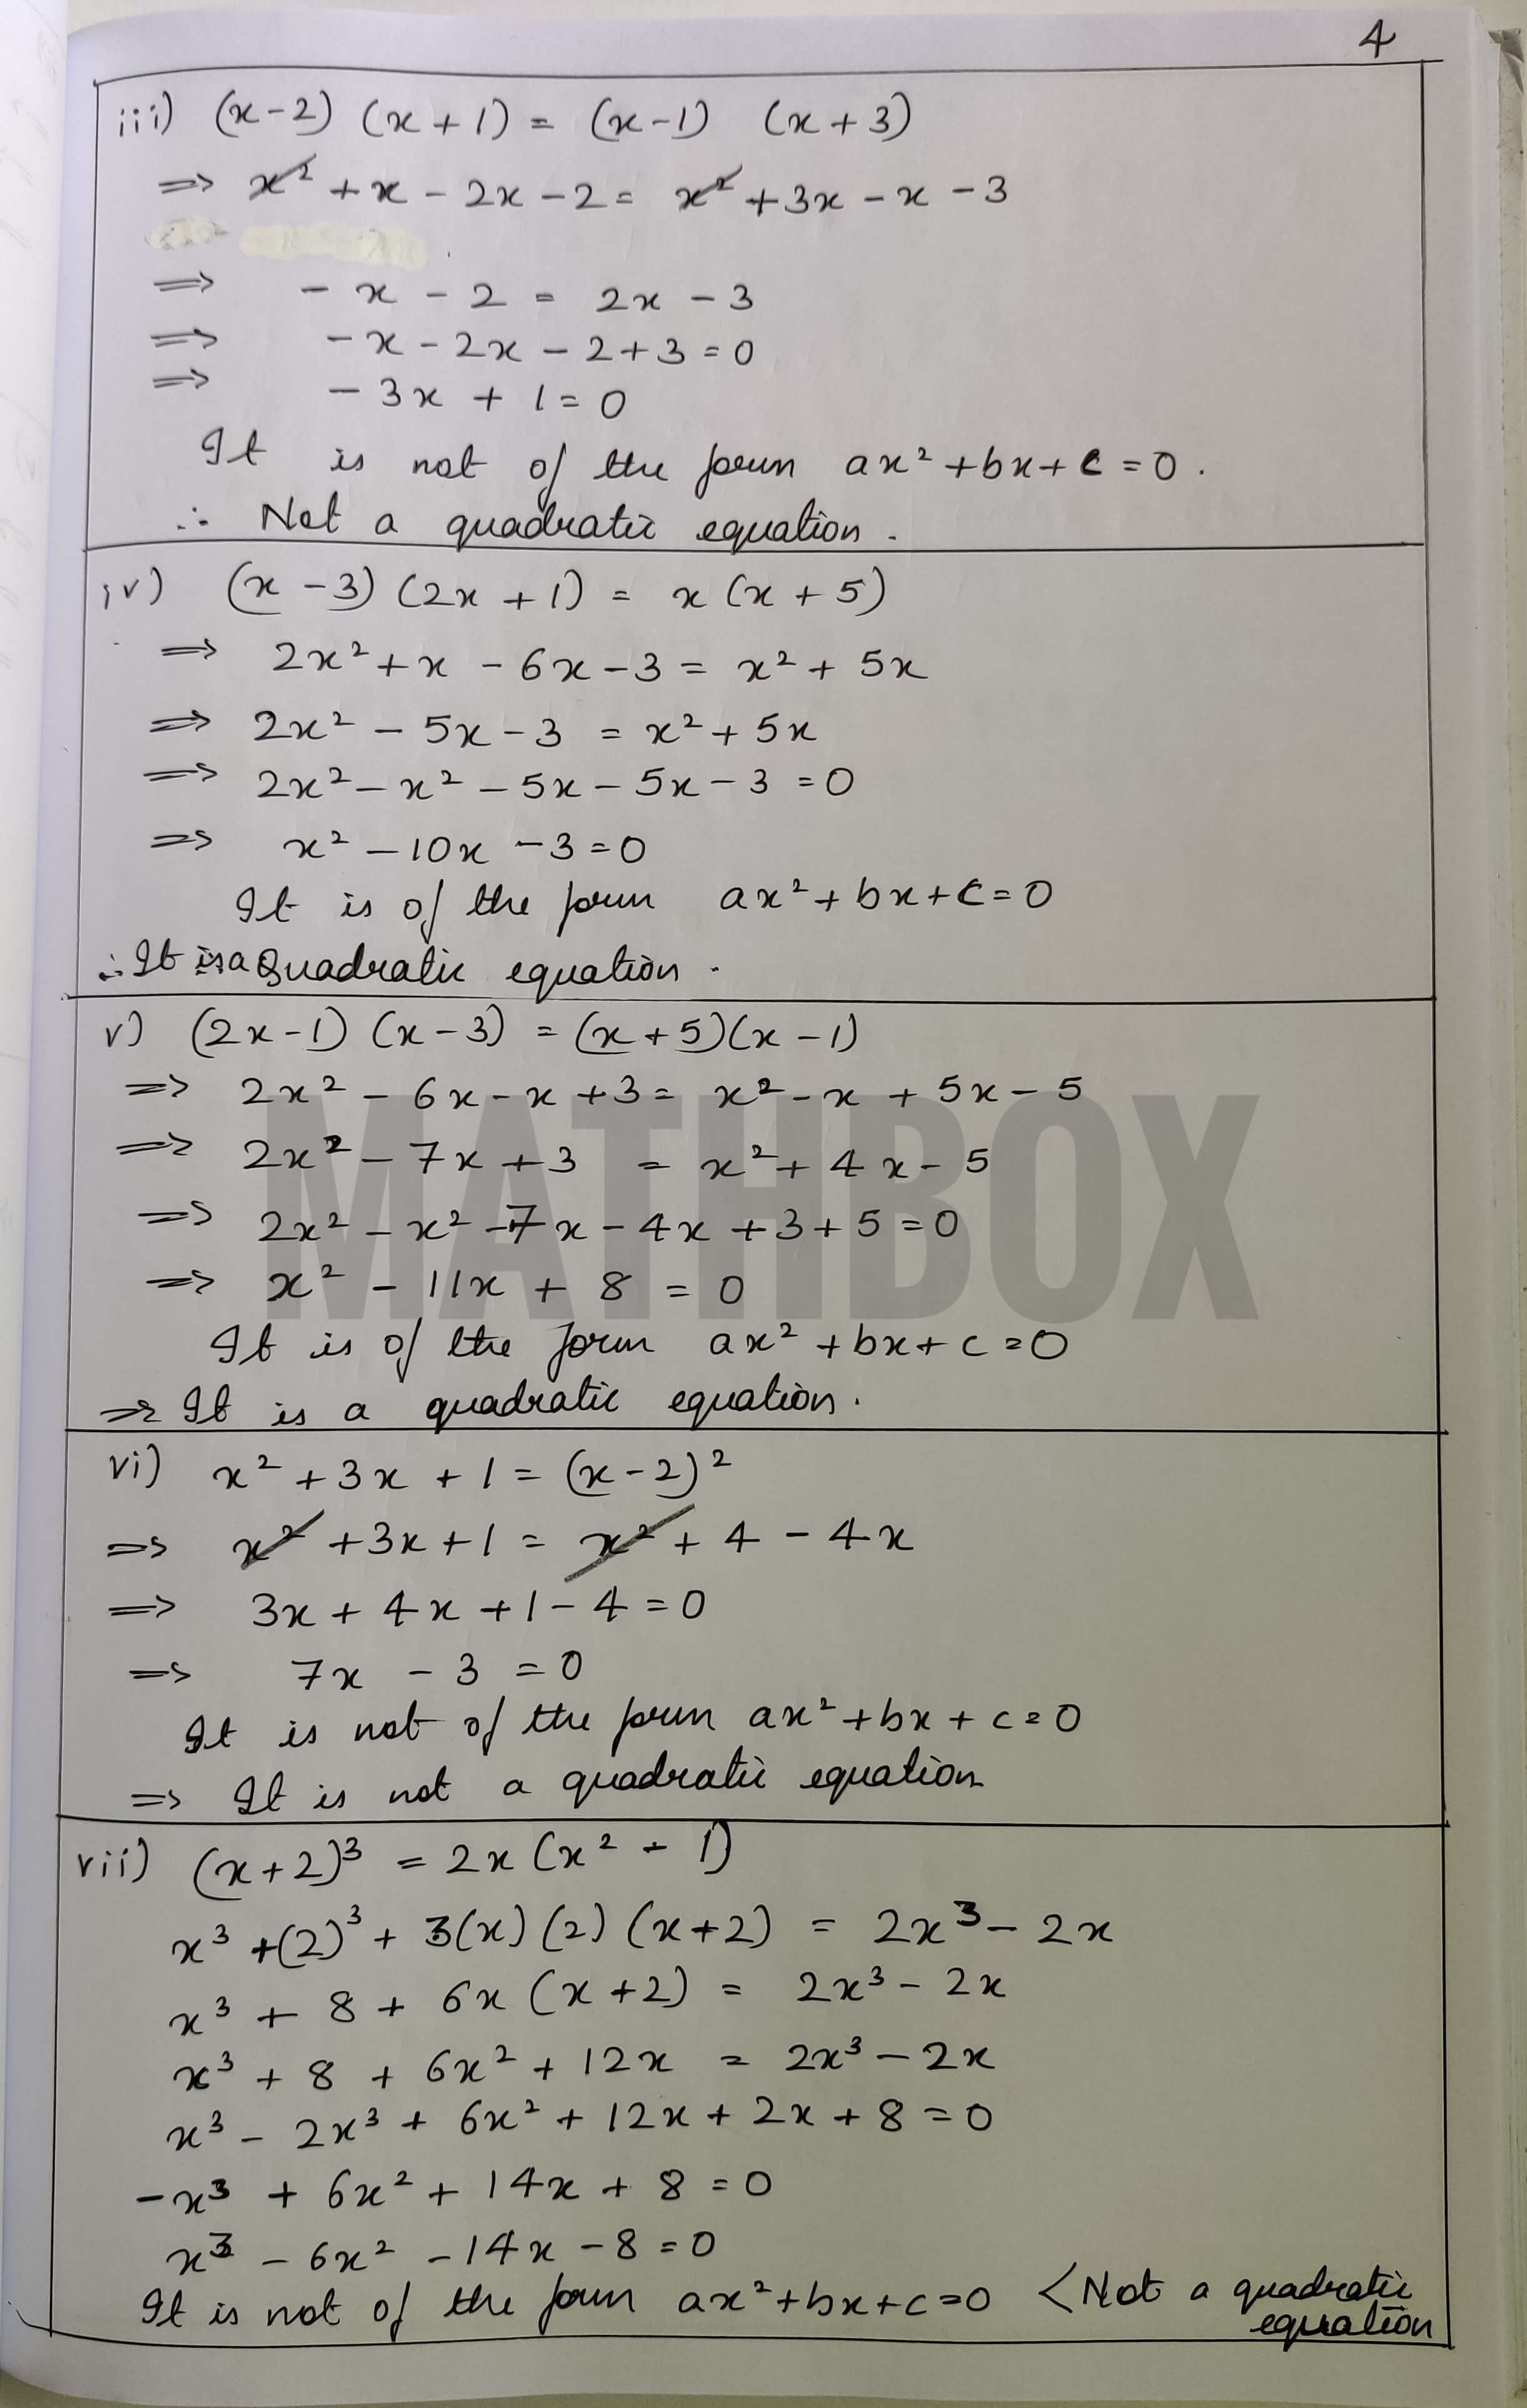 4
iii) (x-2) (x+1) = (x-1) (x+3)
⇒ x² + x - 2x - 2 = x² + 3x - x - 3
⇒ - x - 2 = 2x - 3
⇒ - x - 2x - 2 + 3 = 0
⇒ - 3x + 1 = 0
It is not of the form ax² + bx + c = 0.
∴ Not a quadratic equation.
iv) (x - 3) (2x + 1) = x (x + 5)
⇒ 2x² + x - 6x - 3 = x² + 5x
⇒ 2x² - 5x - 3 = x² + 5x
⇒ 2x² - x² - 5x - 5x - 3 = 0
⇒ x² - 10x - 3 = 0
It is of the form ax² + bx + c = 0
∴ It is a Quadratic equation.
v) (2x-1) (x-3) = (x+5)(x-1)
⇒ 2x² - 6x - x + 3 = x² - x + 5x - 5
⇒ 2x² - 7x + 3 = x² + 4x - 5
⇒ 2x² - x² - 7x - 4x + 3 + 5 = 0
⇒ x² - 11x + 8 = 0
MATHBOX
It is of the form ax² + bx + c = 0
⇒ It is a quadratic equation.
vi) x² + 3x + 1 = (x-2)²
⇒ x² + 3x + 1 = x² + 4 - 4x
⇒ 3x + 4x + 1 - 4 = 0
⇒ 7x - 3 = 0
It is not of the form ax² + bx + c = 0
⇒ It is not a quadratic equation
vii) (x+2)³ = 2x (x² - 1)
x³ + (2)³ + 3(x) (2) (x+2) = 2x³ - 2x
x³ + 8 + 6x (x+2) = 2x³ - 2x
x³ + 8 + 6x² + 12x = 2x³ - 2x
x³ - 2x³ + 6x² + 12x + 2x + 8 = 0
-x³ + 6x² + 14x + 8 = 0
x³ - 6x² - 14x - 8 = 0
It is not of the form ax² + bx + c = 0 < Not a quadratic
equation